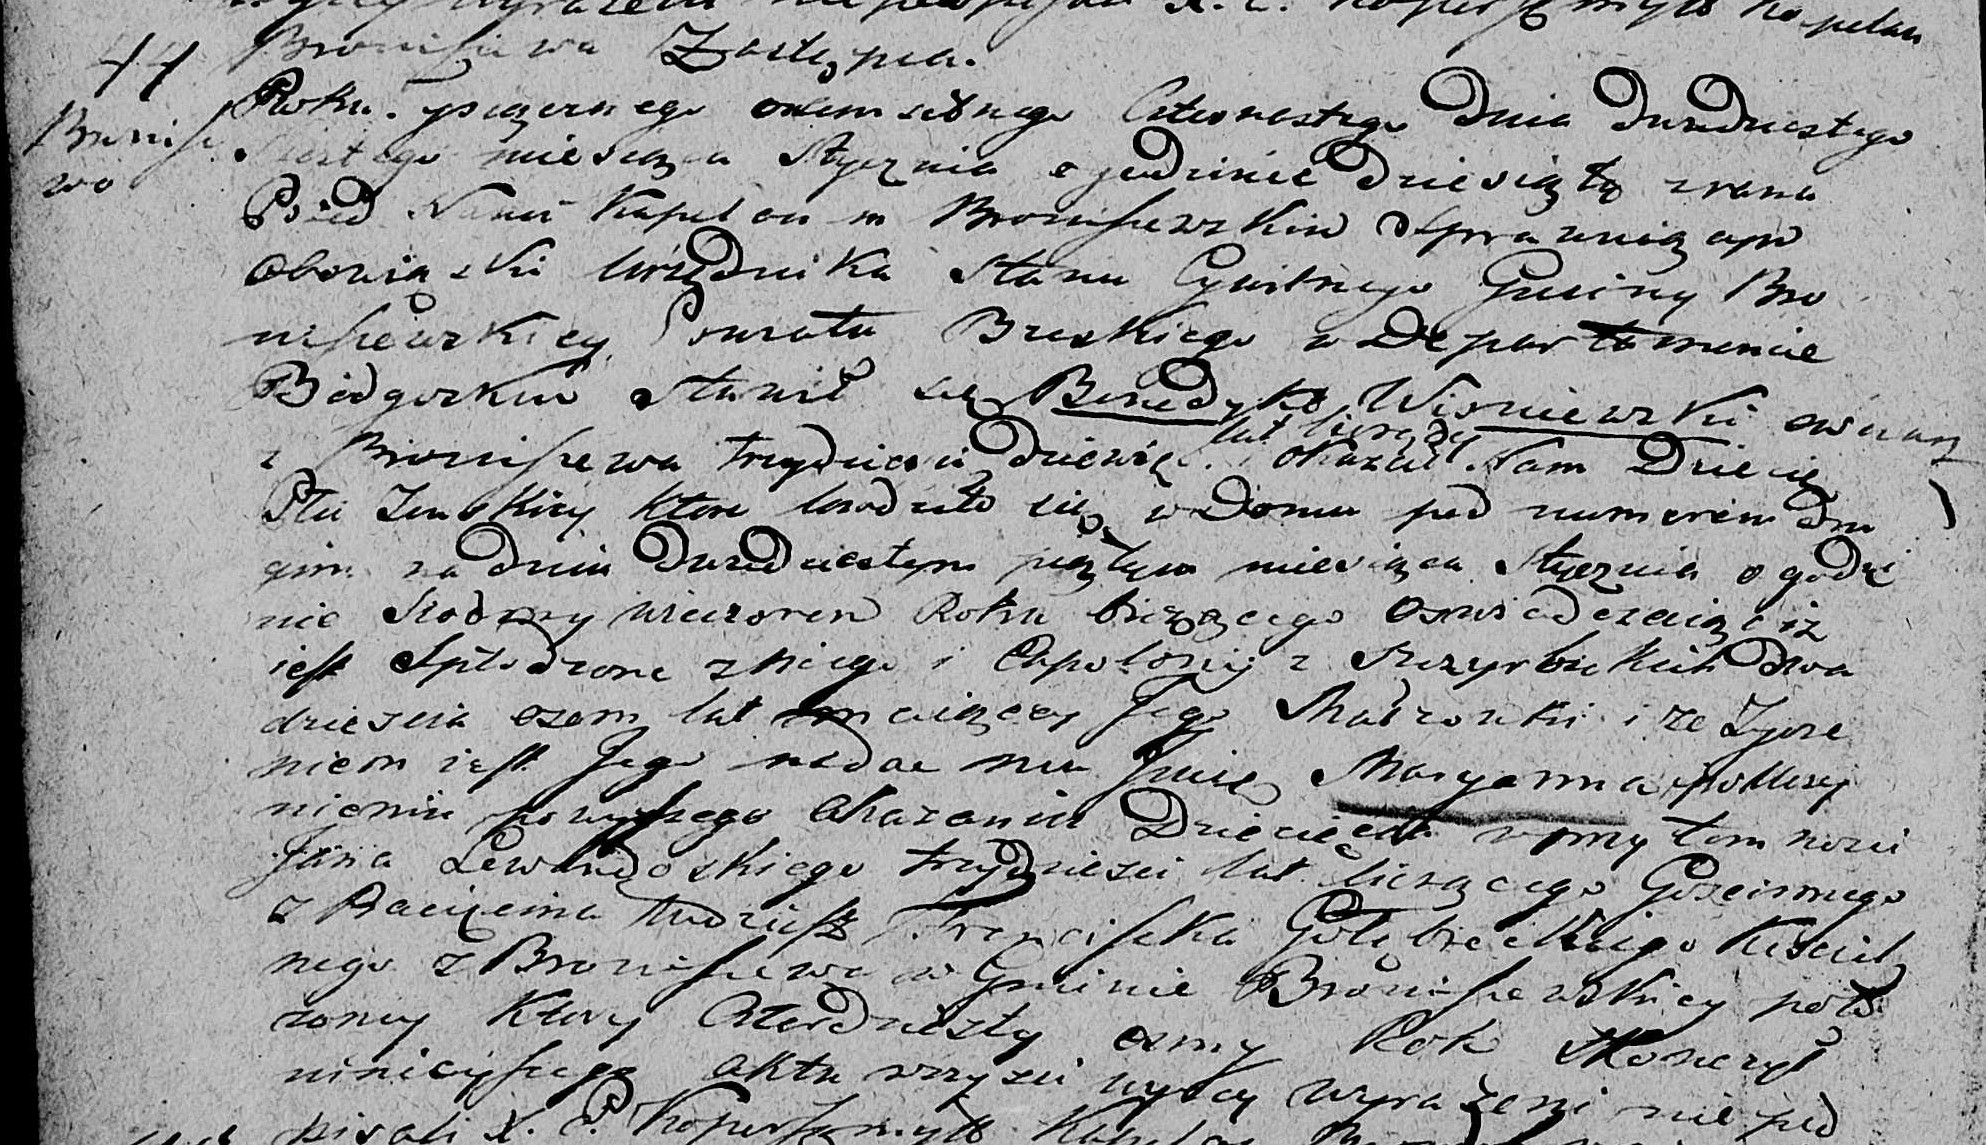 wyżey wyrażeni niepodpisali X. C. Kapelan
Broniszewa Zastępca.
44
Bronisze
wo
Roku tysiącznego osmsetnego Czternastego Dnia Dwudziestego
Szóstego miesiąca Stycznia o godzinie Dziesiątą zrana
Przed Nami Kapelanem Broniszewskim Sprawuiącym
Obowiązki Urzędnika Stanu Cywilnego Gminy Bro
niszewskiey Powiatu Breskiego w Departamencie
Bidgoskim stawił się Benedykt Wiśniewski owczarz
lat liczący
z Broniszewa trzydzieści dziewięć okazał Nam Dziecię
Płci Zenskiey które urodziło się w Domu pod numerem dru
gim na dniu Dwudziestym piątym miesiąca Stycznia o godzi
nie Siodmy wieczorem Roku bieżącego Oswiadczaiąc iż
iest Spłodzone z niego i Apolonij z Szczyrbickich Dwa
dzieścia osem lat maiącey Jego Małżonki i że Życze
niem iest Jego nadać mu Jmie Maryanna po Uczy
nieniu powyższego Okazania Dziecięcia w przytomnosci
Jana Lewandoskiego trzydzieści lat liczącego Goscinnego
z Pacięcina tudzież Franciszka Gołębieckiego Kościel
nego z Broniszewa w Gminie Broniszewskiey poło
zoney Ktory Czterdziesty osmy Rok Skonczył
ninieyszego aktu wszysci wyżey wyrażeni nie pod
pisali X. C. Kapelan